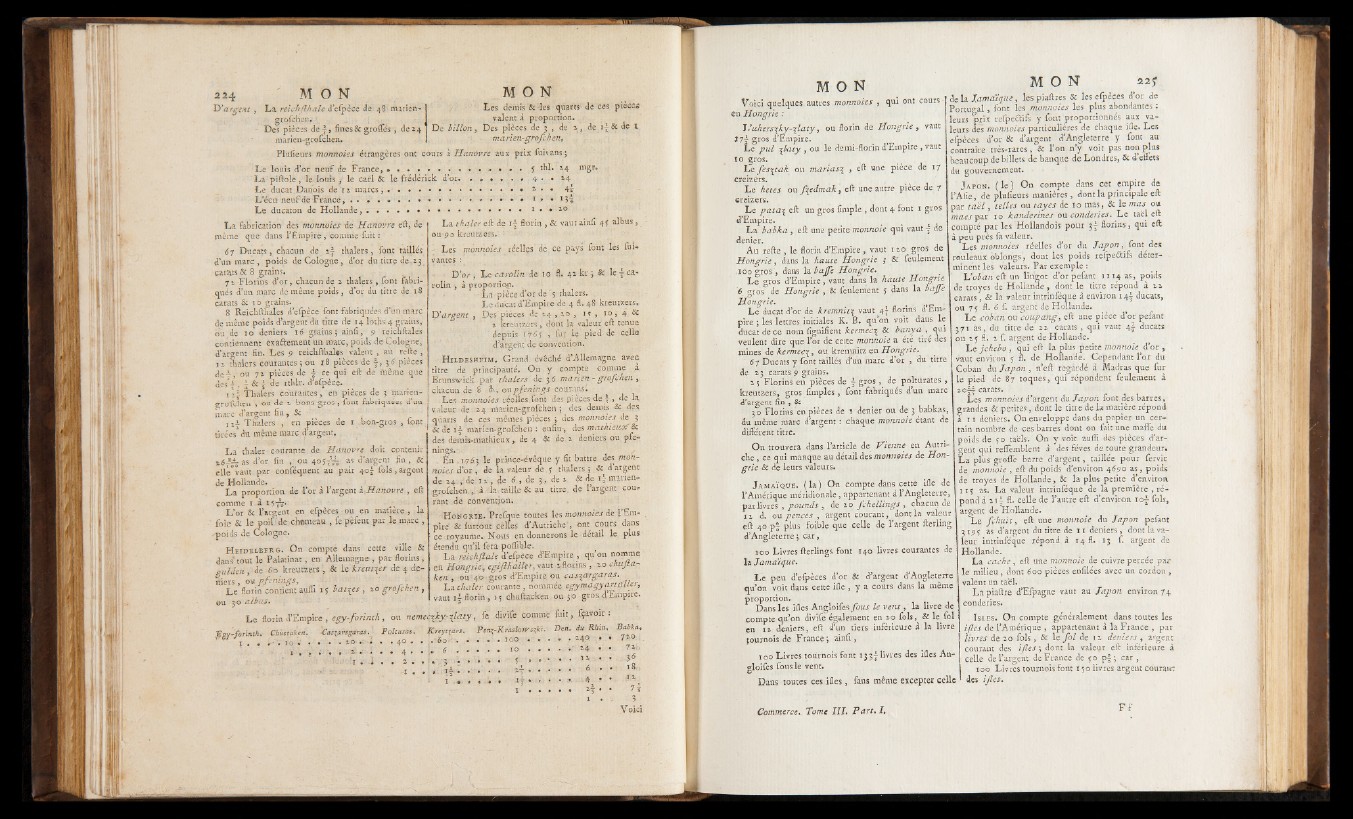 224 MON MON
D'argent, La reichsthale d'espèce de 48 marien-
groschen.
Des pièces de ⅔, fines & grosses, de 24
marien-groschen.
Les demis & les quarts de ces pièces
valent à proportion.
De billon, Des pièces de 3, de 2, de 1½ & de 1
marien-groschen.
Plusieurs monnoies étrangères ont cours à Hanovre aux prix suivans;
Le louis d'or neuf de France, . . . 5 thl. 24 mge.
La pistole, le louis, le carl & le frédérick d'or. . . . 4 . . 24
Le ducat Danois de 12 marcs, . . . 2 . . 4½
L'écu neuf de France, . . . 1 . . 13½
Le ducaton de Hollande, . . . 1 . . 20
La fabrication des monnoies de Hanovre est, de
même que dans l'Empire, comme suit:
67 Ducats, chacun de 2¾ thalers, sont taillés
d'un marc, poids de Cologne, d'or du titre de 23
carats & 8 grains.
72 Florins d'or, chacun de 2 thalers, sont fabri-
qués d'un marc de même poids, d'or du titre de 18
carats & 10 grains.
8 Reichsthales d'espèce sont fabriquées d'un marc
de même poids d'argent du titre de 14 loths 4 grains,
ou de 10 deniers 16 grains; ainsi, 9 reichsthales
contiennent exactement un marc, poids de Cologne,
d'argent fin. Les 9 reichsthales valent, au reste,
12 thalers courantes; ou 18 pièces de ⅔, 36 pièces
de ⅓, ou 72 pièces de ⅙ ce qui est de même que
des ½, ¼ & ⅛ de rthlr. d'espèce.
12½ Thalers courantes, en pièces de 3 marien-
groschen, ou de 2 bons gros, sont fabriquées d'un
marc d'argent fin, &
12½ Thalers, en pièces de 1 bon-gros, sont
tirées du même marc d'argent.
La thaler courante de Hanovre doit contenir
as d'or fin, ou as d'argent fin, &
elle vaut par conséquent au pair 40½ sols, argent
de Hollande.
La proportion de l'or à l'argent à Hanovre, est
comme 1 à
L'or & l'argent en espèces ou en matière, la
soie & le poil de chameau, se pèsent par le marc,
poids de Cologne.
Heidelberg. On compte dans cette ville &
dans tout le Palatinat, en Allemagne, par florins,
gulden, de 60 kreutzers, & le kreutzer de 4 de-
niers, ou pfenings,
Le florin contient aussi 15 batzes, 20 groschen,
ou 30 albus.
La thaler est de 1½ florin, & vaut ainsi 45 albus,
ou 90 kreutzers.
Les monnoies réelles de ce pays sont les sui-
vantes:
D'or, Le carolin de 10 fl. 42 kr; & le ½ ca-
rolin, à proportion.
La pièce d'or de 5 thalers.
Le ducat d'Empire de 4 fl. 48 kreutzers.
D'argent, Des pièces de 24, 20, 12, 10, 4 &
2 kreutzers, dont la valeur est tenue
depuis 1765, sur le pied de celui
d'argent de convention.
Hildesheim. Grand évêché d'Allemagne avec
titre de principauté. On y compte comme à
Brunswick par thalers de 36 marien-groschen,
chacun de 8 d. ou pfenings courans.
Les monnoies réelles sont des pièces de ⅔, de la
valeur de 24 marien-groschen; des demis & des
quarts de ces mêmes pièces; des monnoies de 3
& de 1½ marien-groschen: enfin, des mathieux &
des demis-mathieux, de 4 & de 2 deniers ou pfe-
nings.
En 1763 le prince-évêque y fit battre des mon-
noies d'or, de la valeur de 5 thalers; & d'argent
de 24, de 12, de 6, de 3, de 2 & de 1½ marien-
groschen, à la taille & au titre de l'argent cou-
rant de convention.
Hongrie. Presque toutes les monnoies de l'Em-
pire & surtout celles d'Autriche, ont cours dans
ce royaume. Nous en donnerons le détail le plus
étendu qu'il sera possible.
La reichsthale d'espèce d'Empire, qu'on nomme
en Hongrie, egisstaller, vaut 2 florins, 20 chusta-
ken, ou 40 gros d'Empire ou caszargaras.
La thaler courante, nommée egymagyartaller,
vaut 1½ florin, 15 chustacken ou 30 gros d'Empire.
Le florin d'Empire, egy-forinth, ou nemeczky-zlaty, se divise comme suit, sçavoir:
Egy-forinth. Chustaken. Caszaregaras. Poltaras. Kreytzars. Den. du Rhin. Babka.
1 . . 10 . . 20 . . 40 . . 60 . . 100 . . 240 . . 720
1 . . 2 . . 4 . . 6 . . 10 . . 24 . . 72
1 . . 2 . . 3 . . 5 . . 12 . . 36
1 . . 1½ . . 2½ . . 6 . . 18
1 . . 1⅔ . . 4 . . 12
1 . . 2⅖ . . 7⅕
1 . . 3
Voici
MON MON 225
Voici quelques autres monnoies, qui ont cours
en Hongrie:
L'uherszky-zlaty, ou florin de Hongrie, vaut
17½ gros d'Empire.
Le pul zlaty, ou le demi-florin d'Empire, vaut
10 gros.
Le fesztak ou mariasz, est une pièce de 17
creizers.
Le hetes ou szedmak, est une autre pièce de 7
creizers.
Le patasz est un gros simple, dont 4 font 1 gros
d'Empire.
La babka, est une petite monnoie qui vaut ⅓ de
denier.
Au reste, le florin d'Empire, vaut 120 gros de
Hongrie, dans la haute Hongrie; & seulement
100 gros, dans la basse Hongrie.
Le gros d'Empire, vaut dans la haute Hongrie
6 gros de Hongrie, & seulement 5 dans la basse
Hongrie.
Le ducat d'or de kremnitz vaut 4¼ florins d'Em-
pire; les lettres initiales K. B. qu'on voit dans le
ducat de ce nom signifient kermecz & banya, qui
veulent dire que l'or de cette monnoie a été tiré des
mines de kermecz, ou kremnitz en Hongrie.
67 Ducats y sont taillés d'un marc d'or, du titre
de 23 carats 9 grains.
25 Florins en pièces de ½ gros, de polturates,
kreutzers, gros simples, sont fabriqués d'un marc
d'argent fin, &
30 Florins en pièces de 1 denier ou de 3 babkas,
du même marc d'argent: chaque monnoie étant de
différent titre.
On trouvera dans l'article de Vienne en Autri-
che, ce qui manque au détail des monnoies de Hon-
grie & de leurs valeurs.
Jamaïque. (la) On compte dans cette isle de
l'Amérique méridionale, appartenant à l'Angleterre,
par livres, pounds, de 20 schellings, chacun de
12 d. ou pences, argent courant, dont la valeur
est 40 p⁰ plus foible que celle de l'argent sterling
d'Angleterre; car,
100 Livres sterlings font 140 livres courantes de
la Jamaïque.
Le peu d'espèces d'or & d'argent d'Angleterre
qu'on voit dans cette isle, y a cours dans la même
proportion.
Dans les isles Angloises sous le vent, la livre de
compte qu'on divise également en 20 sols, & le sol
en 12 deniers, est d'un tiers inférieure à la livre
tournois de France; ainsi,
100 Livres tournois font 133⅓ livres des isles An-
gloises sous le vent.
Dans toutes ces isles, sans même excepter celle
de la Jamaïque, les piastres & les espèces d'or de
Portugal, sont les monnoies les plus abondantes:
leurs prix respectifs y sont proportionnés aux va-
leurs des monnoies particulières de chaque isle. Les
espèces d'or & d'argent d'Angleterre y sont au
contraire très-rares, & l'on n'y voit pas non plus
beaucoup de billets de banque de Londres, & d'effets
du gouvernement.
Japon. (le) On compte dans cet empire de
l'Asie, de plusieurs manières, dont la principale est
par taël, telles ou tayes de 10 mas, & le mas ou
maes par 10 kanderines ou conderies. Le taël est
compté par les Hollandois pour 3½ florins, qui est
à peu près sa valeur.
Les monnoies réelles d'or du Japon, sont des
rouleaux oblongs, dont les poids respectifs déter-
minent les valeurs. Par exemple:
L'oban est un lingot d'or pesant 1114 as, poids
de troyes de Hollande, dont le titre répond à 22
carats, & la valeur intrinsèque à environ 14¼ ducats,
ou 75 fl. 6 s. argent de Hollande.
Le coban ou coupang, est une pièce d'or pesant
371 as, du titre de 22 carats, qui vaut 4¾ ducats
ou 25 fl. 2 s. argent de Hollande.
Le jchebo, qui est la plus petite monnoie d'or,
vaut environ 5 fl. de Hollande. Cependant l'or du
Coban du Japon, n'est regardé à Madras que sur
le pied de 87 toques, qui répondent seulement à
carats.
Les monnoies d'argent du Japon sont des barres,
grandes & petites, dont le titre de la matière répond
à 11 deniers. On enveloppe dans du papier un cer-
tain nombre de ces barres dont on fait une masse du
poids de 50 taëls. On y voit aussi des pièces d'ar-
gent qui ressemblent à des fèves de toute grandeur.
La plus grosse barre d'argent, taillée pour servir
de monnoie, est du poids d'environ 4690 as, poids
de troyes de Hollande, & la plus petite d'environ
115 as. La valeur intrinsèque de la première, ré-
pond à 21½ fl. celle de l'autre est d'environ 10½ sols,
argent de Hollande.
Le schuit, est une monnoie du Japon pesant
3195 as d'argent du titre de 11 deniers, dont la va-
leur intrinsèque répond à 14 fl. 13 s. argent de
Hollande.
La cache, est une monnoie de cuivre percée par
le milieu, dont 600 pièces enfilées avec un cordon,
valent un taël.
La piastre d'Espagne vaut au Japon environ 74
conderies.
Isles. On compte généralement dans toutes les
isles de l'Amérique, appartenant à la France, par
livres de 20 sols, & le sol de 12 deniers, argent
courant des isles; dont la valeur est inférieure à
celle de l'argent de France de 50 p⁰; car,
100 Livres tournois font 150 livres argent courant
des isles.
Commerce. Tome III. Part. I. Ff